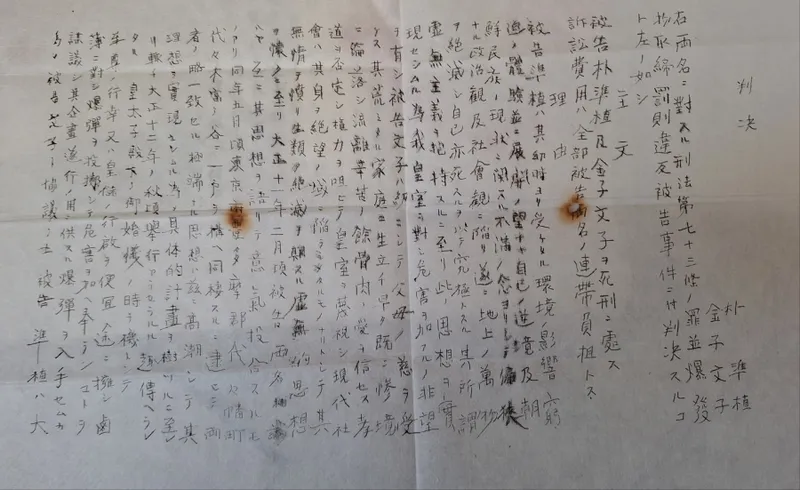 判決
朴準植
金子文子
右両名ニ対スル刑法第七十三條ノ罪並爆發
物取締罰則違反被告事件ニ付判決スルコ
ト左ノ如シ
主文
被告朴準植及金子文子ヲ死刑ニ處ス
訴訟費用ハ全部被告両名ノ連帯負担トス
理由
被告準植ハ其幼時ヨリ受ケタル環境ノ影響
ト自己ノ逆境及朝
鮮民族ノ現状ニ関スル不満ノ念ヨリシテ偏狭
ナル政治觀及社會觀ニ陥リ遂ニ地上ノ萬物
ヲ絶滅シ自己亦死スルヲ以テ究極トスル其所謂
虚無主義ヲ抱持スルニ至リ此ノ思想ヲ實
現セシムル為我皇室ニ對シ危害ヲ加フルノ非望
ヲ有シ被告文子ハ幼ニシテ父母ノ慈ヲ受
ケス其荒ミタル家庭ニ生立イ早ク既ニ惨境
ニ淪落シ流離辛苦ノ餘骨肉ノ愛ヲ信セス孝
道ヲ否定シ権力ヲ呪ヒテ皇室ヲ蔑視シ現代社
會ハ其身ヲ絶望ノ域ニ陥ラシメタルモノナリトシテ其
無情ヲ憤リ生類ノ絶滅ヲ願スル虚無的思想
ヲ懐クニ至リ大正十一年二月頃被告両名相識
ルヤ互ニ其思想ヲ語リテ意氣投合スルモ
ノアリ同年五月頃東京府豊多摩郡代々幡町
代々木富ヶ谷ニ一戸ヲ構ヘ同棲スルニ達セシ両
者ノ略一致セル極端ナル思想ハ茲ニ高潮シテ其
理想ヲ實現セシムル為具体的計畫ヲ樹ツルニ至
リ輙チ大正十二年ノ秋頃舉行アラセラルル趣傳ヘラレ
タル皇太子殿下ノ御婚儀ノ時ヲ機トシテ
至尊ノ行幸又ハ皇儲ノ行啓ヲ便宜途ニ擁シ鹵
薄ニ對シ爆彈ヲ投擲シテ危害ヲ加ヘ奉ランコトヲ
謀議シ其企畫遂行ノ用ニ供スル爆彈ヲ入手セムカ
為メ被告文子ト協議ノ上被告準植ハ大